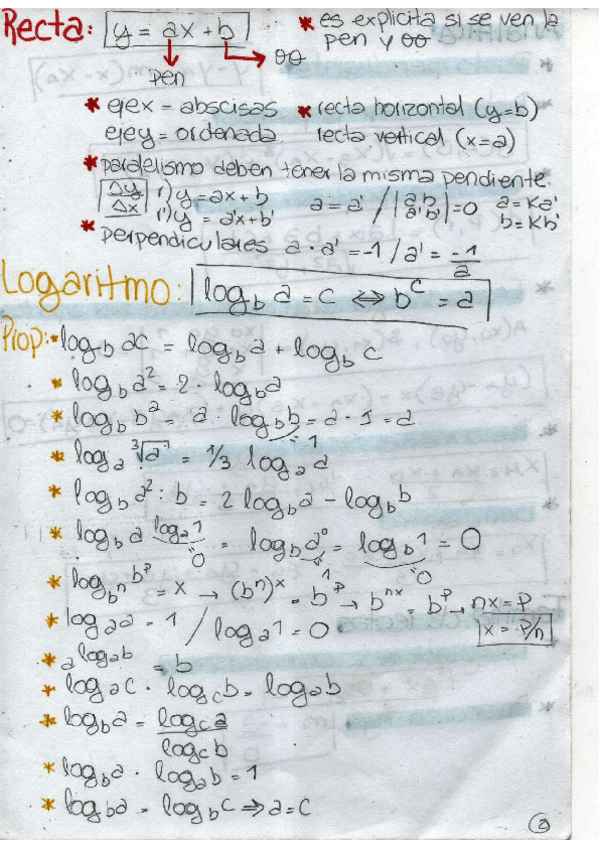 Recta: y = ax + b * es explicita si se ven la
pen y oo
pen oo
* eje x = abscisas * recta horizontal (y=b)
eje y = ordenada recta vertical (x=a)
* paralelismo deben tener la misma pendiente.
Δy/Δx r) y = ax + b a = a' / |a b a' b'| = 0 a = Ka'
r') y = a'x + b' b = Kb'
* perpendiculares a · a' = -1 / a' = -1/a
Logaritmo: log_b a = c ⇔ b^c = a
Prop: * log_b ac = log_b a + log_b c
* log_b a² = 2 · log_b a
* log_b b^a = a · log_b b = a · 1 = a
1
* log_a ³√a = 1/3 log_a a
* log_b a² : b = 2 log_b a - log_b b
* log_b a^(log_a 1) = log_b a⁰ = log_b 1 = 0
0 1 0
* log_(b^n) b^p = x → (b^n)^x = b^p → b^(nx) = b^p → nx = p
* log_a a = 1 / log_a 1 = 0 x = p/n
* a^(log_a b) = b
* log_a c · log_c b = log_a b
* log_b a = log_c a / log_c b
* log_b a · log_a b = 1
* log_b a = log_b c ⇒ a = c